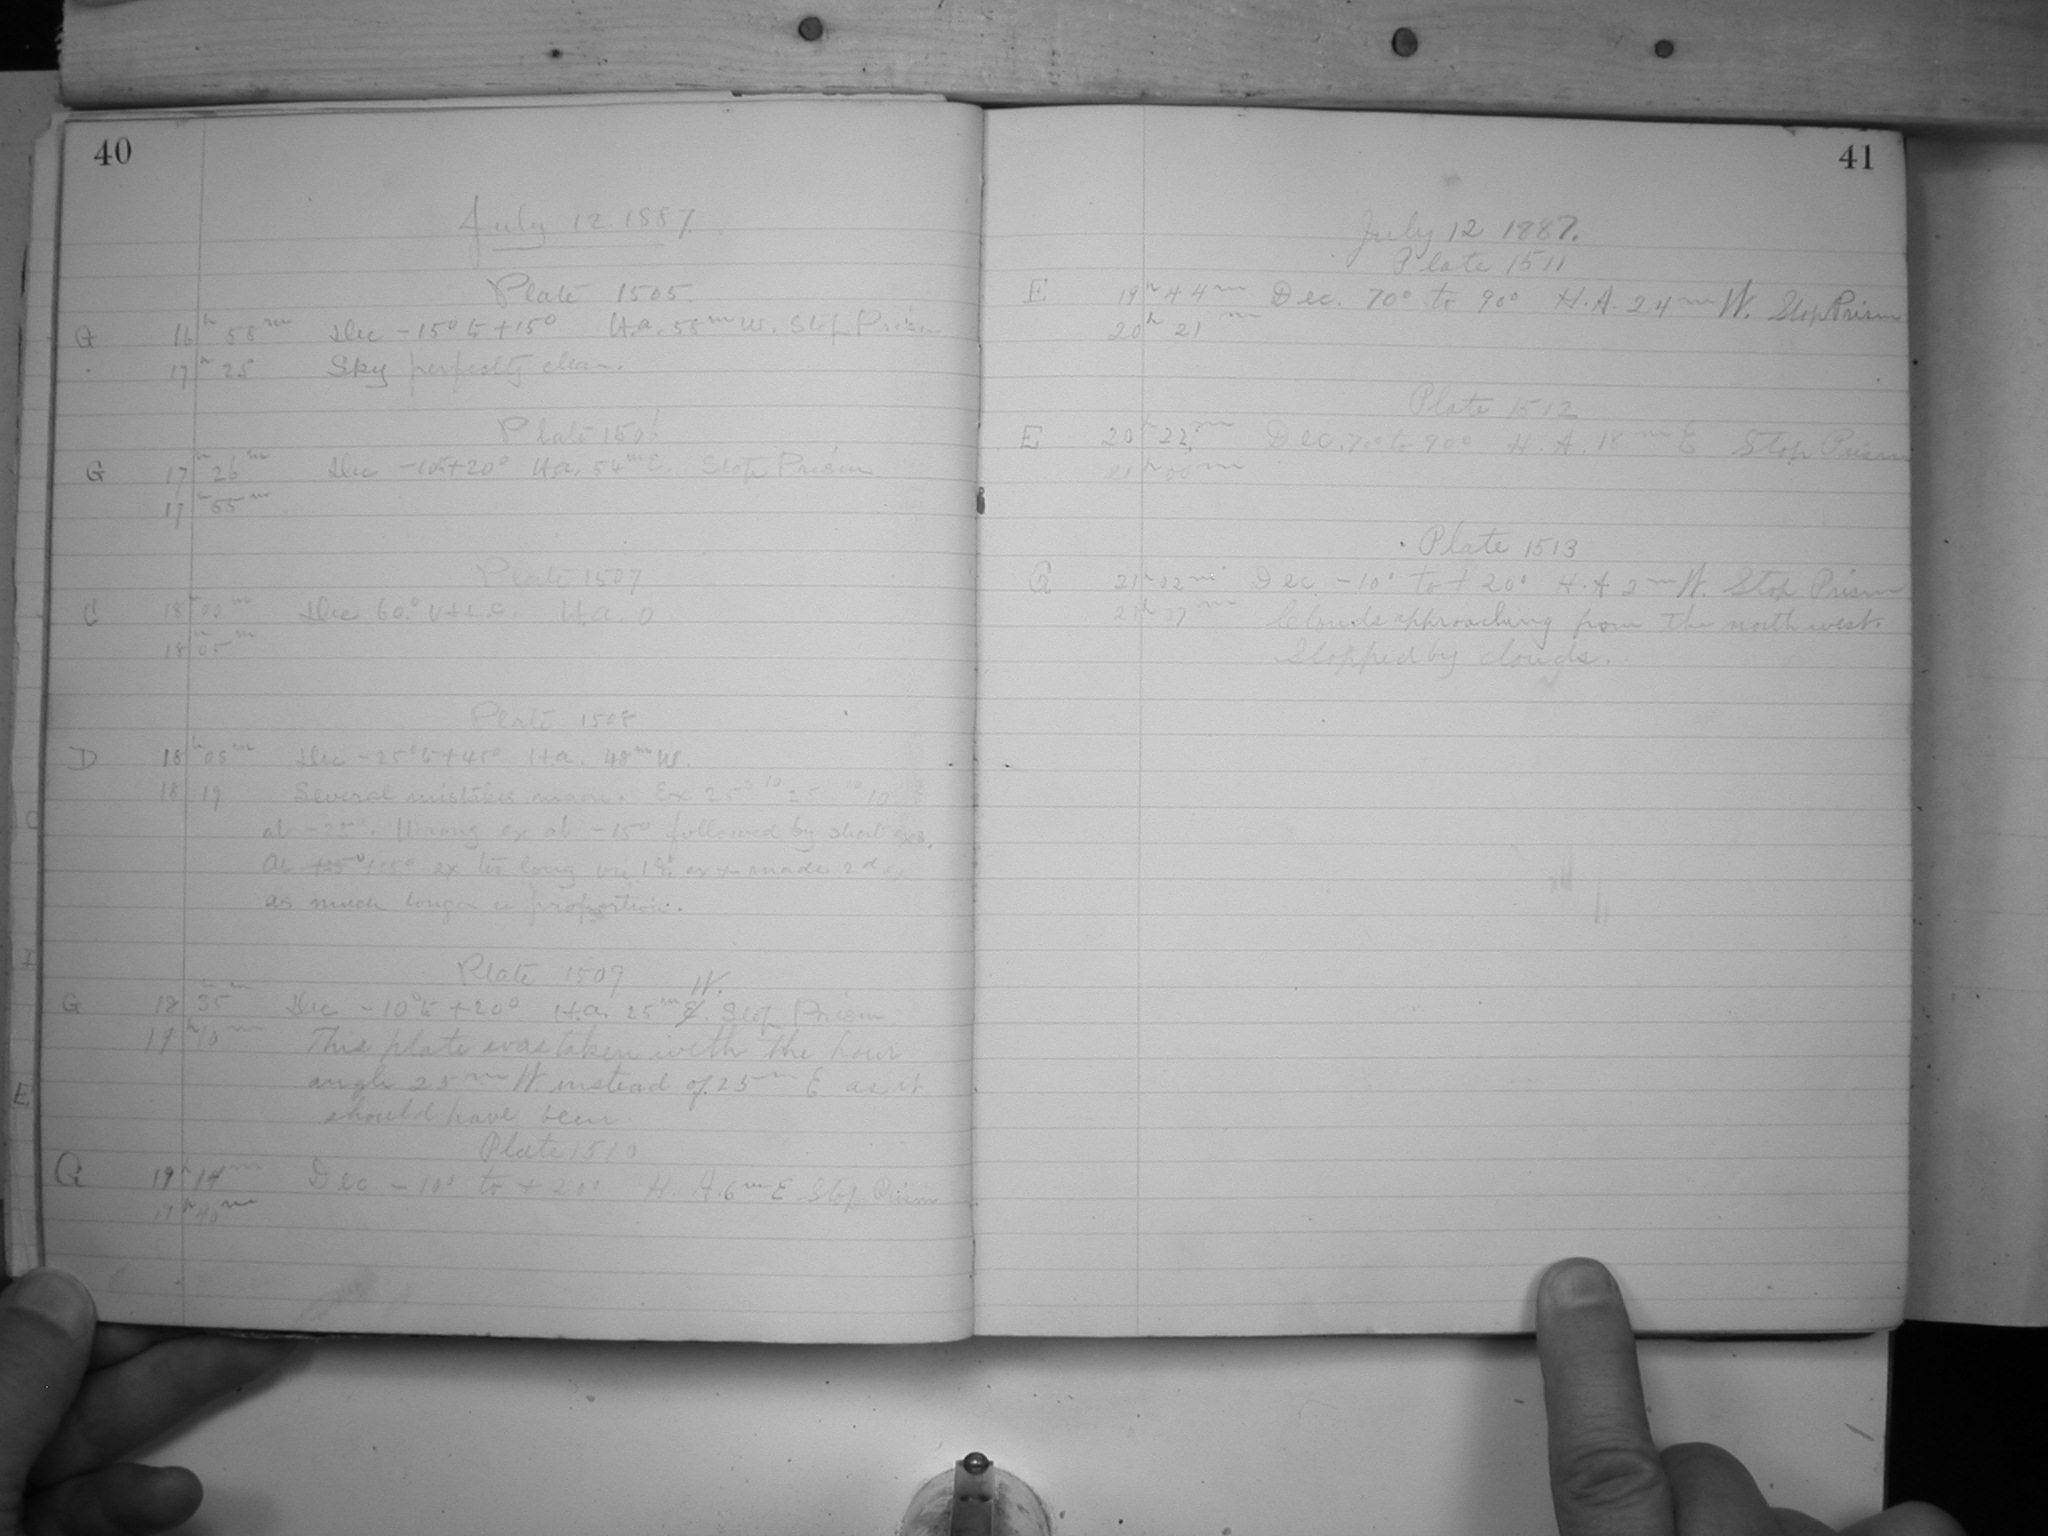 40
July 12 1887.
Plate 1505.
G 16h 58m Dec -15° to +15° H.a. 58m W. Stop Prism
17h 25 Sky perfectly clear.
Plate 1506
G 17h 26m Dec -10 to +20° H.a. 54m E. Stop Prism
17h 55m
Plate 1507
C 18h 00m Dec 60° U + L.C. H.a. 0
18h 05m
Plate 1508
D 18h 05m Dec -25° to +45° H.a. 48m W.
18 19 Several mistakes made. Ex 25
at -25°. Wrong ex at -15° followed by short exs.
At +15° ex too long in 1st ex made 2d ex
as much longer in proportion.
Plate 1509 W.
G 18h 35m Dec -10° to +20° H.a. 25m E. Stop Prism
19h 10m This plate was taken with the hour
angle 25m W. instead of 25m E as it
should have been
Plate 1510
G 19h 14m Dec. -10° to +20° H. A. 6m E Stop Prism
19h 40m
41
July 12 1887.
Plate 1511
E 19h 44m Dec. 70° to 90° H.A. 24m W. Stop Prism
20h 21m
Plate 1512
E 20h 22m Dec. 70° to 90° H. A. 18m E Stop Prism
21h 00m
Plate 1513
G 21h 02m Dec. -10° to +20° H.A 2m W. Stop Prism
21h 37m Clouds approaching from the north west.
Stopped by clouds.